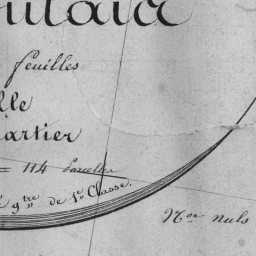 feuilles
lle
artier
= 114 Parcelles
g^tre de 1^re Classe.
N^on nuls